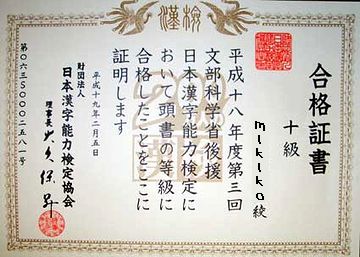 漢検
合格証書
十級
mikiko 絞
平成十八年度第三回
文部科学省後援
日本漢字能力検定に
おいて頭書の等級に
合格したことをここに
証明します
平成十九年二月五日
財団法人
日本漢字能力検定協会
理事長 大久保昇
第〇六三S〇〇〇二五八一号